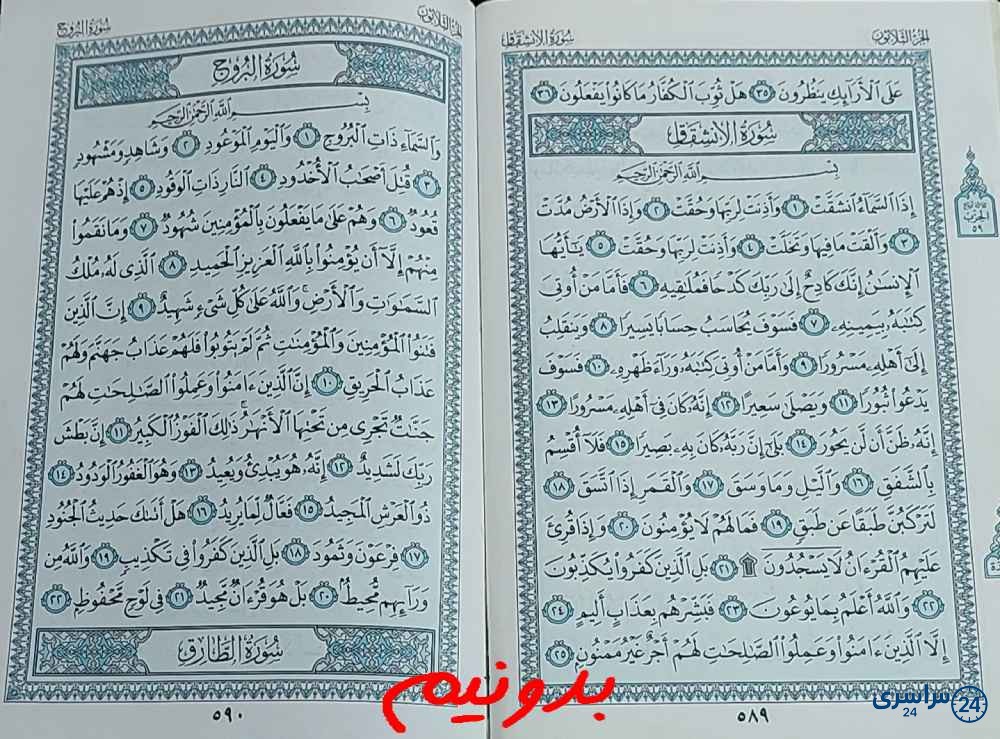 الجزء الثلاثون
سورة الانشقاق
عَلَى ٱلْأَرَآئِكِ يَنظُرُونَ ٣٥ هَلْ ثُوِّبَ ٱلْكُفَّارُ مَا كَانُوا۟ يَفْعَلُونَ ٣٦
سُورَةُ الانْشِقَاقِ
بِسْمِ ٱللَّهِ ٱلرَّحْمَٰنِ ٱلرَّحِيمِ
إِذَا ٱلسَّمَآءُ ٱنشَقَّتْ ١ وَأَذِنَتْ لِرَبِّهَا وَحُقَّتْ ٢ وَإِذَا ٱلْأَرْضُ مُدَّتْ
٣ وَأَلْقَتْ مَا فِيهَا وَتَخَلَّتْ ٤ وَأَذِنَتْ لِرَبِّهَا وَحُقَّتْ ٥ يَٰٓأَيُّهَا
ٱلْإِنسَٰنُ إِنَّكَ كَادِحٌ إِلَىٰ رَبِّكَ كَدْحًا فَمُلَٰقِيهِ ٦ فَأَمَّا مَنْ أُوتِىَ
كِتَٰبَهُۥ بِيَمِينِهِۦ ٧ فَسَوْفَ يُحَاسَبُ حِسَابًا يَسِيرًا ٨ وَيَنقَلِبُ
إِلَىٰٓ أَهْلِهِۦ مَسْرُورًا ٩ وَأَمَّا مَنْ أُوتِىَ كِتَٰبَهُۥ وَرَآءَ ظَهْرِهِۦ ١٠ فَسَوْفَ
يَدْعُوا۟ ثُبُورًا ١١ وَيَصْلَىٰ سَعِيرًا ١٢ إِنَّهُۥ كَانَ فِىٓ أَهْلِهِۦ مَسْرُورًا ١٣
إِنَّهُۥ ظَنَّ أَن لَّن يَحُورَ ١٤ بَلَىٰٓ إِنَّ رَبَّهُۥ كَانَ بِهِۦ بَصِيرًا ١٥ فَلَآ أُقْسِمُ
بِٱلشَّفَقِ ١٦ وَٱلَّيْلِ وَمَا وَسَقَ ١٧ وَٱلْقَمَرِ إِذَا ٱتَّسَقَ ١٨
لَتَرْكَبُنَّ طَبَقًا عَن طَبَقٍ ١٩ فَمَا لَهُمْ لَا يُؤْمِنُونَ ٢٠ وَإِذَا قُرِئَ
عَلَيْهِمُ ٱلْقُرْءَانُ لَا يَسْجُدُونَ ۩ ٢١ بَلِ ٱلَّذِينَ كَفَرُوا۟ يُكَذِّبُونَ
٢٢ وَٱللَّهُ أَعْلَمُ بِمَا يُوعُونَ ٢٣ فَبَشِّرْهُم بِعَذَابٍ أَلِيمٍ ٢٤
إِلَّا ٱلَّذِينَ ءَامَنُوا۟ وَعَمِلُوا۟ ٱلصَّٰلِحَٰتِ لَهُمْ أَجْرٌ غَيْرُ مَمْنُونٍ ٢٥
٥٨٩
الحزب
٥٩
الجزء الثلاثون
سورة البروج
سُورَةُ البُرُوجِ
بِسْمِ ٱللَّهِ ٱلرَّحْمَٰنِ ٱلرَّحِيمِ
وَٱلسَّمَآءِ ذَاتِ ٱلْبُرُوجِ ١ وَٱلْيَوْمِ ٱلْمَوْعُودِ ٢ وَشَاهِدٍ وَمَشْهُودٍ
٣ قُتِلَ أَصْحَٰبُ ٱلْأُخْدُودِ ٤ ٱلنَّارِ ذَاتِ ٱلْوَقُودِ ٥ إِذْ هُمْ عَلَيْهَا
قُعُودٌ ٦ وَهُمْ عَلَىٰ مَا يَفْعَلُونَ بِٱلْمُؤْمِنِينَ شُهُودٌ ٧ وَمَا نَقَمُوا۟
مِنْهُمْ إِلَّآ أَن يُؤْمِنُوا۟ بِٱللَّهِ ٱلْعَزِيزِ ٱلْحَمِيدِ ٨ ٱلَّذِى لَهُۥ مُلْكُ
ٱلسَّمَٰوَٰتِ وَٱلْأَرْضِ ۚ وَٱللَّهُ عَلَىٰ كُلِّ شَىْءٍ شَهِيدٌ ٩ إِنَّ ٱلَّذِينَ
فَتَنُوا۟ ٱلْمُؤْمِنِينَ وَٱلْمُؤْمِنَٰتِ ثُمَّ لَمْ يَتُوبُوا۟ فَلَهُمْ عَذَابُ جَهَنَّمَ وَلَهُمْ
عَذَابُ ٱلْحَرِيقِ ١٠ إِنَّ ٱلَّذِينَ ءَامَنُوا۟ وَعَمِلُوا۟ ٱلصَّٰلِحَٰتِ لَهُمْ
جَنَّٰتٌ تَجْرِى مِن تَحْتِهَا ٱلْأَنْهَٰرُ ۚ ذَٰلِكَ ٱلْفَوْزُ ٱلْكَبِيرُ ١١ إِنَّ بَطْشَ
رَبِّكَ لَشَدِيدٌ ١٢ إِنَّهُۥ هُوَ يُبْدِئُ وَيُعِيدُ ١٣ وَهُوَ ٱلْغَفُورُ ٱلْوَدُودُ ١٤
ذُو ٱلْعَرْشِ ٱلْمَجِيدُ ١٥ فَعَّالٌ لِّمَا يُرِيدُ ١٦ هَلْ أَتَىٰكَ حَدِيثُ ٱلْجُنُودِ
١٧ فِرْعَوْنَ وَثَمُودَ ١٨ بَلِ ٱلَّذِينَ كَفَرُوا۟ فِى تَكْذِيبٍ ١٩ وَٱللَّهُ مِن
وَرَآئِهِم مُّحِيطٌۢ ٢٠ بَلْ هُوَ قُرْءَانٌ مَّجِيدٌ ٢١ فِى لَوْحٍ مَّحْفُوظٍۭ ٢٢
سُورَةُ الطَّارِقِ
٥٩٠
بدونیم
سراسری 24
24